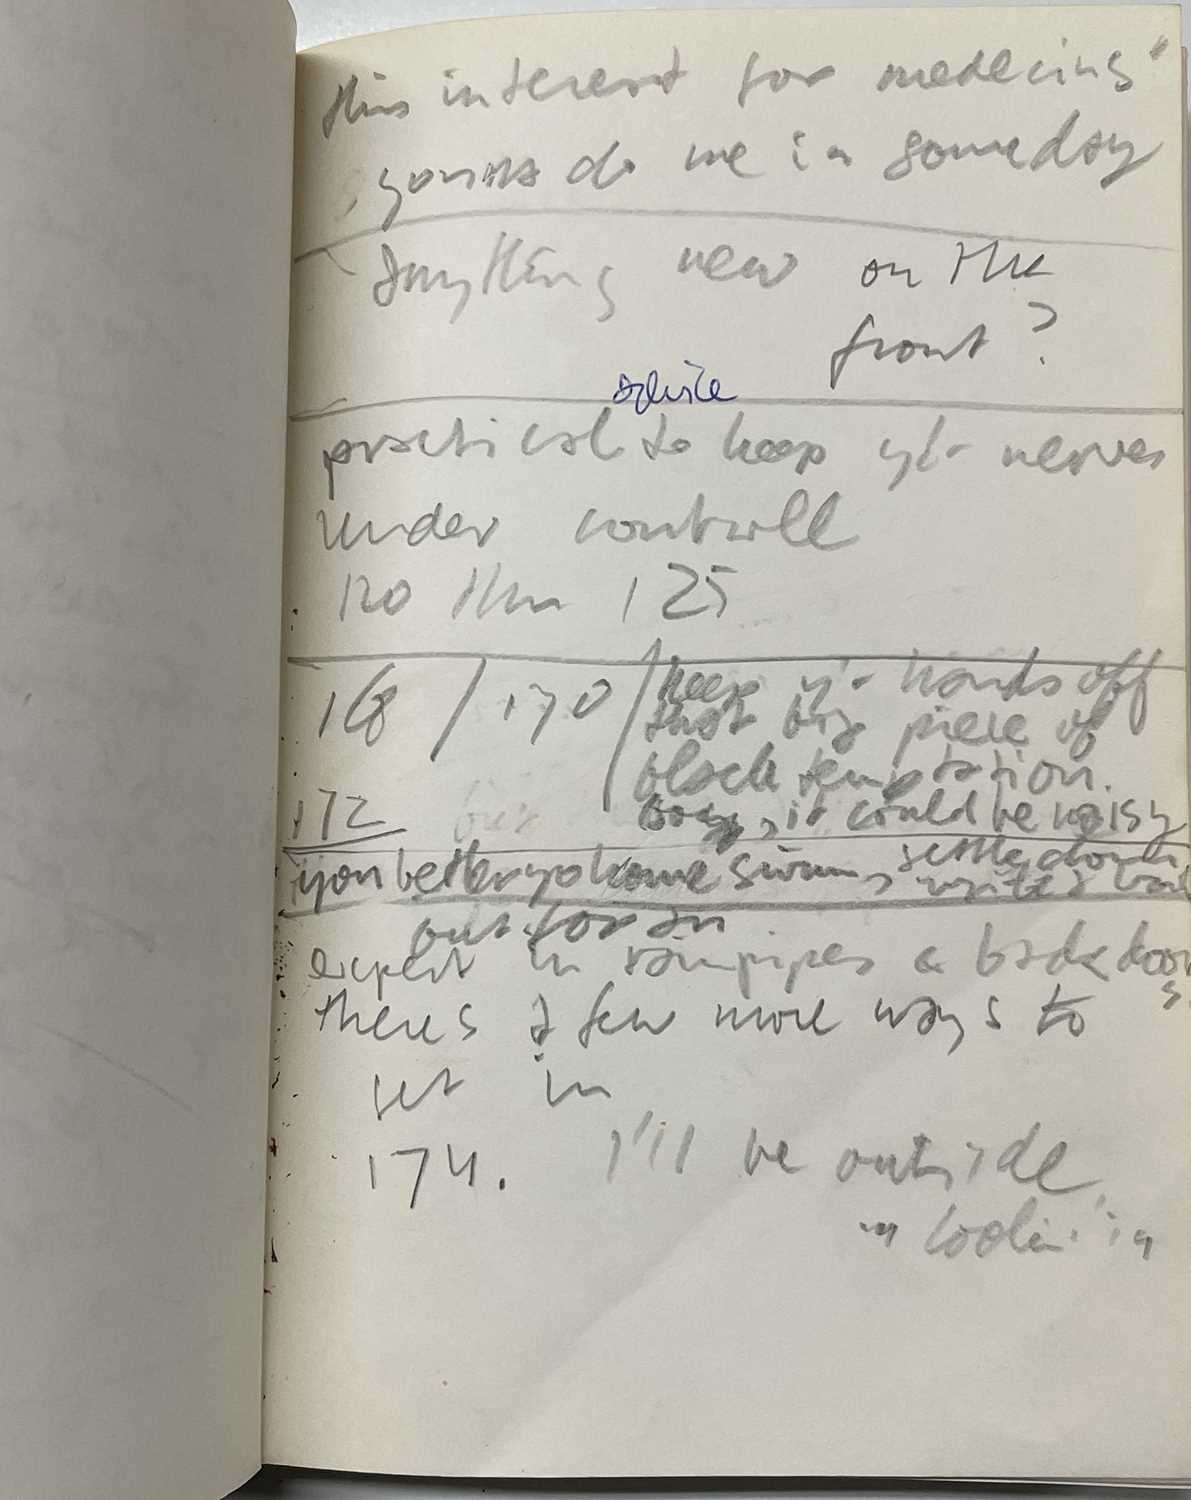 this interest for medecins"
gonna do me in someday
anything new on the
front?
advice
practical to keep yr nerves
under controll
120 thru 125
168 / 170 / keep yr hands off
that big piece of
black temptation.
172 but , it could be noisy
you better go home , settle down
out for an
expert in rainpipes & backdoors
theres a few more ways to
get in
174. I'll be outside
lookin' in